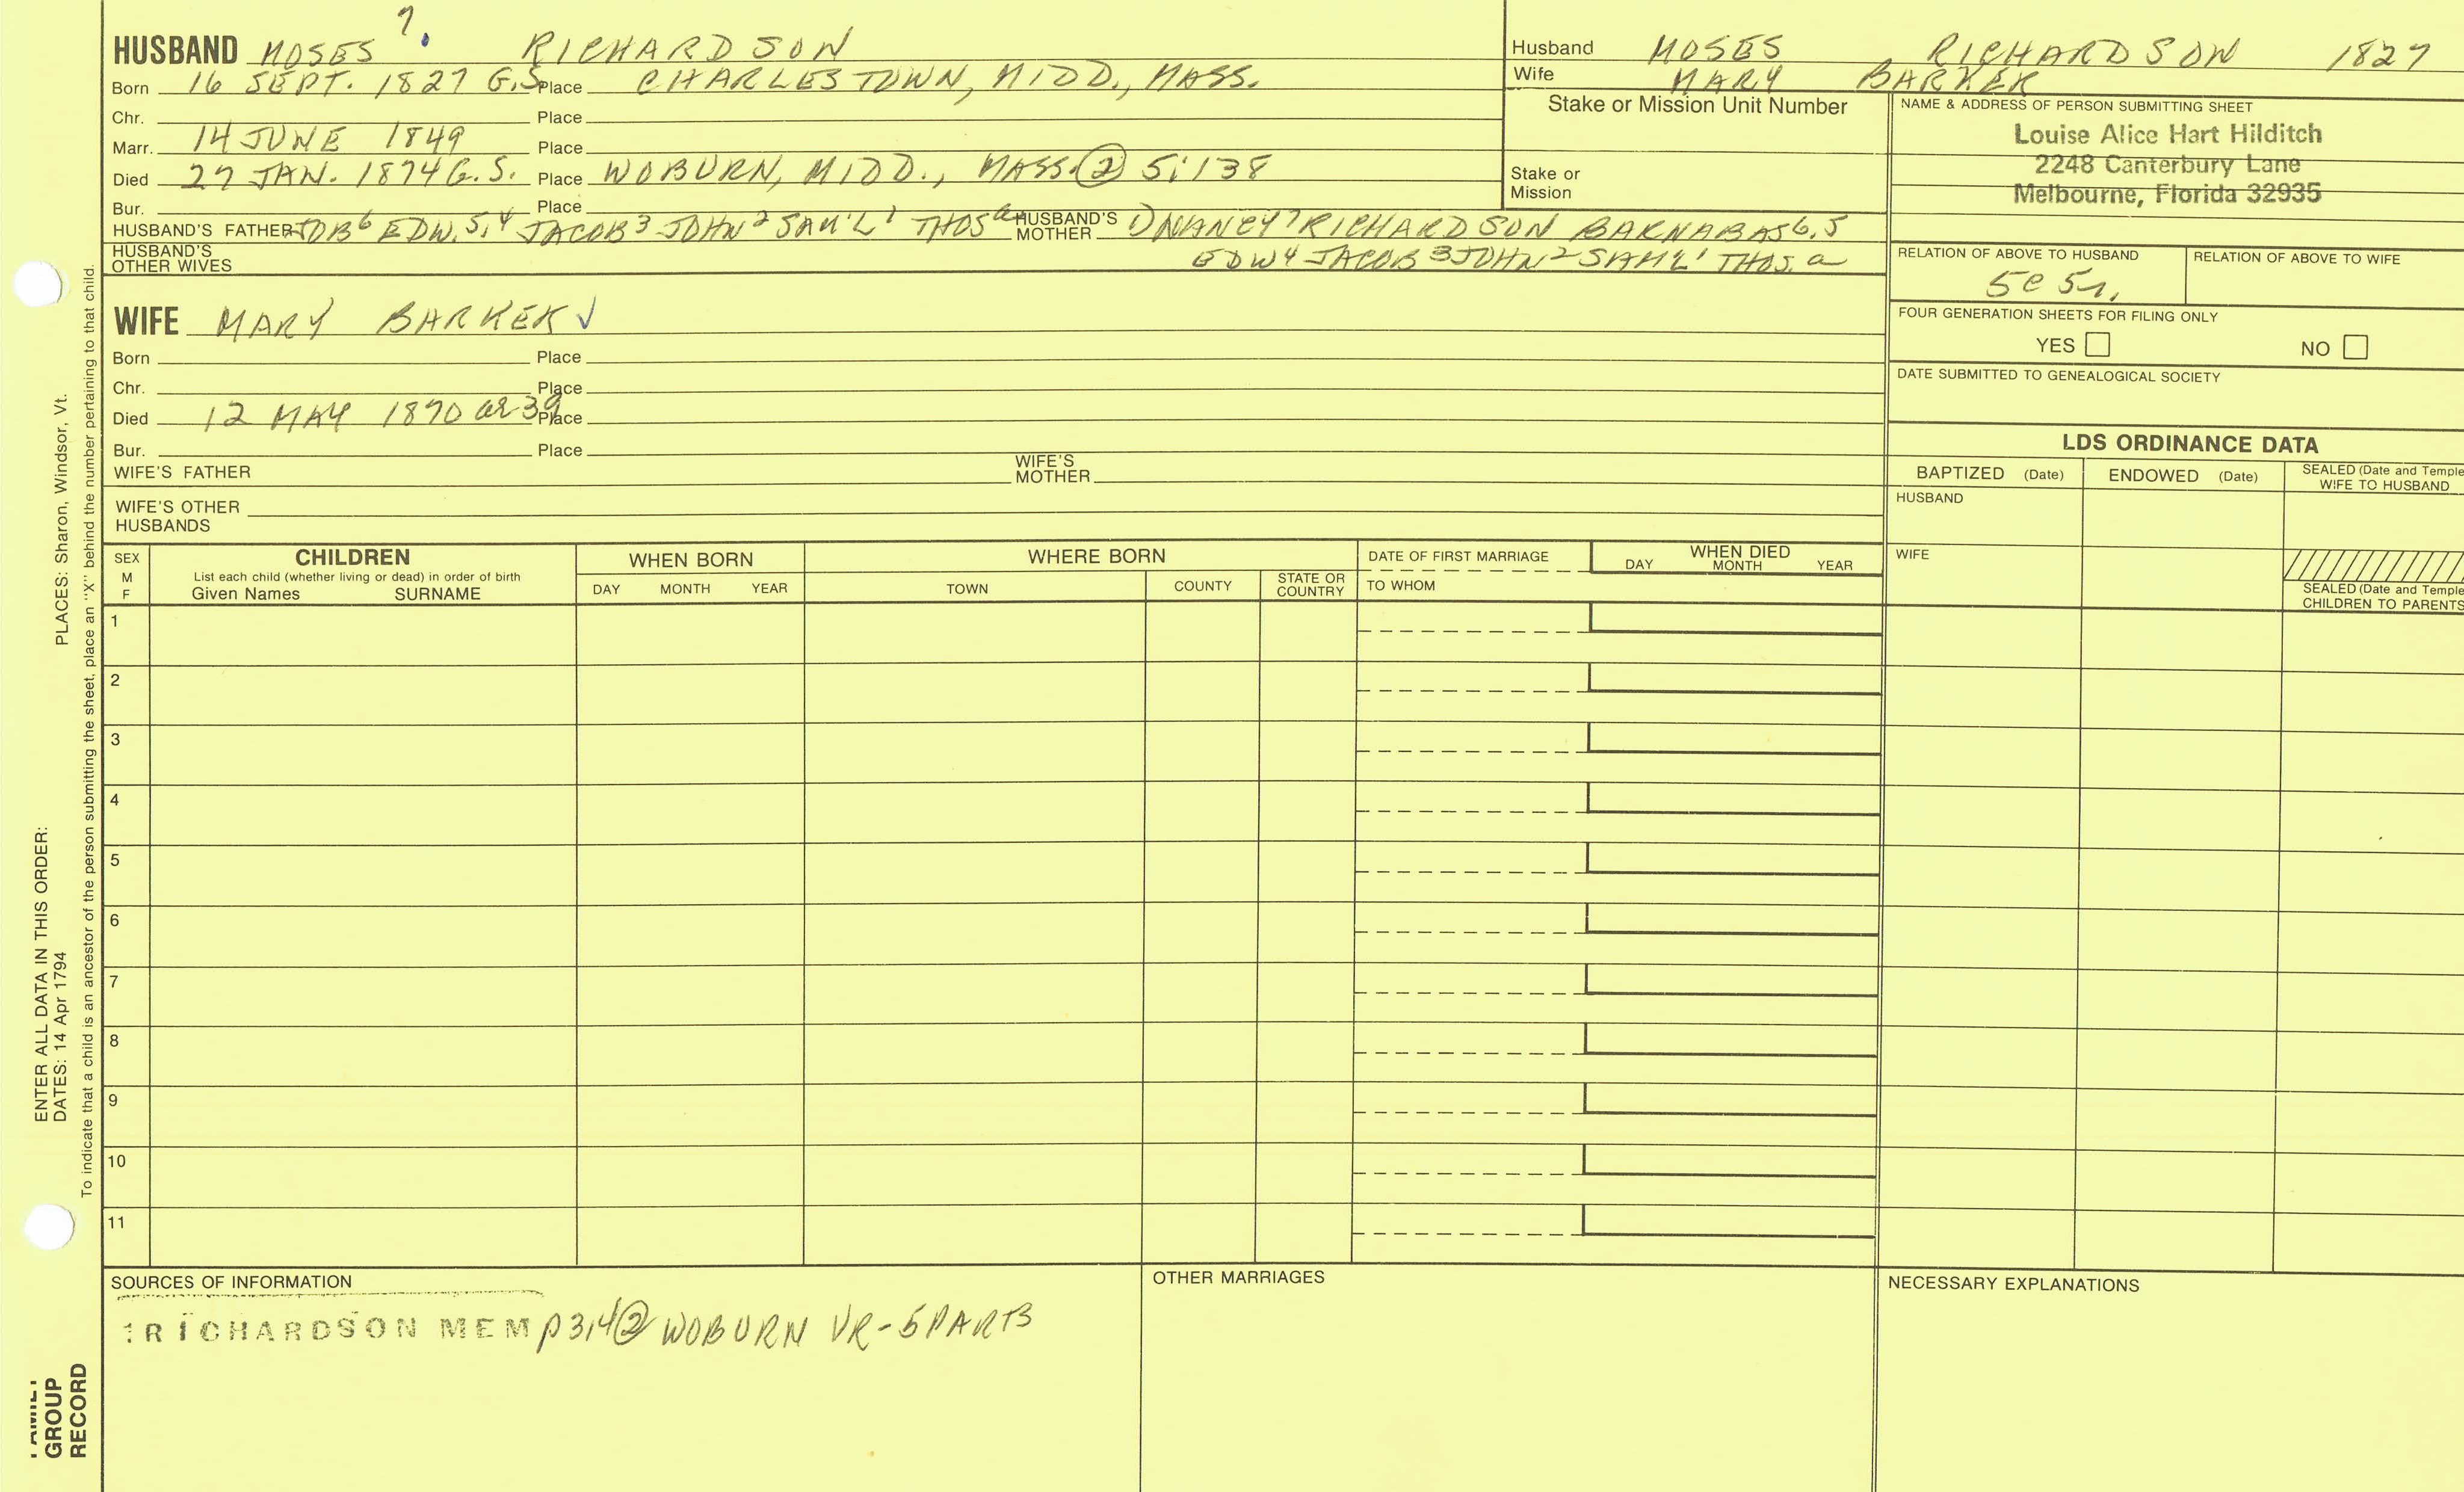 7.
HUSBAND MOSES RICHARDSON
Born 16 SEPT. 1827 G.S. Place CHARLESTOWN, MIDD., MASS.
Chr. Place
Marr. 14 JUNE 1849 Place
Died 27 JAN. 1874 G.S. Place WOBURN, MIDD., MASS. ② 5:138
Bur. Place
HUSBAND'S FATHER JOB 6 EDW. 5,4 JACOB 3 JOHN 2 SAM'L 1 THOS a HUSBAND'S MOTHER NANCY 7 RICHARDSON BARNABAS 6,5
HUSBAND'S OTHER WIVES EDW 4 JACOB 3 JOHN 2 SAM'L 1 THOS. a
WIFE MARY BARKER ✓
Born Place
Chr. Place
Died 12 MAY 1870 ae 39 Place
Bur. Place
WIFE'S FATHER WIFE'S MOTHER
WIFE'S OTHER HUSBANDS
Husband MOSES RICHARDSON 1827
Wife MARY BARKER
Stake or Mission Unit Number
Stake or Mission
NAME & ADDRESS OF PERSON SUBMITTING SHEET
Louise Alice Hart Hilditch
2248 Canterbury Lane
Melbourne, Florida 32935
RELATION OF ABOVE TO HUSBAND RELATION OF ABOVE TO WIFE
FOUR GENERATION SHEETS FOR FILING ONLY
YES NO
DATE SUBMITTED TO GENEALOGICAL SOCIETY
LDS ORDINANCE DATA
BAPTIZED (Date) ENDOWED (Date) SEALED (Date and Temple
WIFE TO HUSBAND
HUSBAND
WIFE
SEALED (Date and Temple
CHILDREN TO PARENTS
SEX M F
CHILDREN
List each child (whether living or dead) in order of birth
Given Names SURNAME
WHEN BORN
DAY MONTH YEAR
WHERE BORN
TOWN COUNTY STATE OR COUNTRY
DATE OF FIRST MARRIAGE
TO WHOM
WHEN DIED
DAY MONTH YEAR
1
2
3
4
5
6
7
8
9
10
11
SOURCES OF INFORMATION
RICHARDSON MEM p 314 ② WOBURN VR - 5 PARTS
OTHER MARRIAGES
NECESSARY EXPLANATIONS
ENTER ALL DATA IN THIS ORDER:
DATES: 14 Apr 1794 PLACES: Sharon, Windsor, Vt.
To indicate that a child is an ancestor of the person submitting the sheet, place an "X" behind the number pertaining to that child.
FAMILY
GROUP
RECORD